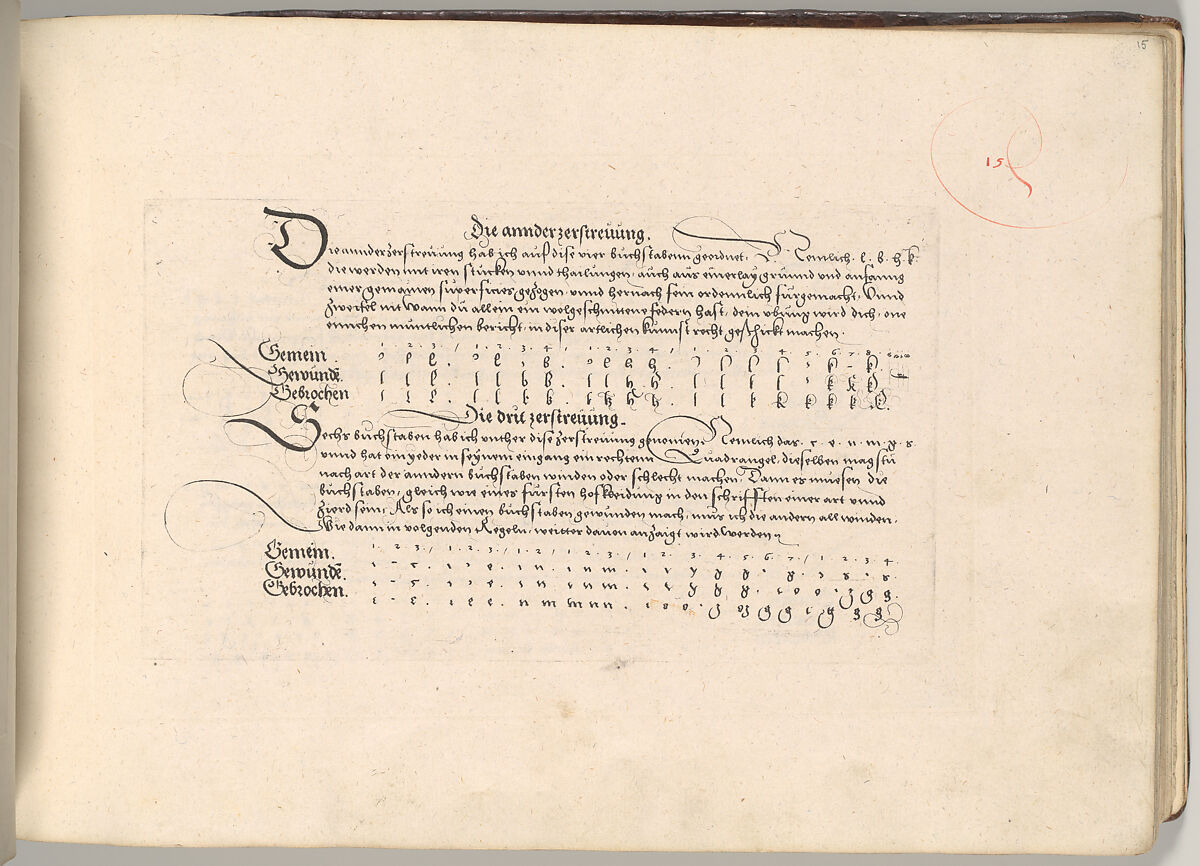 15
15
Die annder zerstreüung.
Die annder zerstreüung hab ich auf dise vier buchstabenn geordnet. Nemlich. l. b. h. k.
die werden mit iren stucken vnnd thailungen, auch aus einerlay grund vnd anfanng
einer gemainen superficies gezogen, vnnd hernach fein ordennlich fürgemacht. Vnnd
zweifel nit wann du allein ein wolgeschnittene federn hast, dein vbung wird dich, one
ennichen mündtlichen bericht, in diser artlichen kunnst recht geschickt machen.
1. 2. 3. / 1. 2. 3. 4. 1. 2. 3. 4. / 1. 2. 3. 4. 5. 6. 7. 8.
Gemein.
Gewunde.
Gebrochen
Die drit zerstreüung.
Sechs buchstaben hab ich vnther dise zerstreüung genomen. Nemlich das. c. e. n. m. g. s.
vnnd hat ein yeder in seynem eingang ein rechtenn Quadrangel, dieselben magstu
nach art der anndern buchstaben winden oder schlecht machen. Dann es muesen die
buchstaben, gleich wie eines fürsten hofkleidung in den schrifften einer art vnnd
zierd sein, Als so ich einen buchstaben gewunden mach, mus ich die andern all winden.
Wie dann in volgenden Regeln, weitter dauon anzaigt wird werden
1. 2. 3. / 1. 2. 3. / 1. 2. / 1. 2. 3. / 1. 2. 3. 4. 5. 6. 7. / 1. 2. 3. 4.
Gemein.
Gewunde.
Gebrochen.